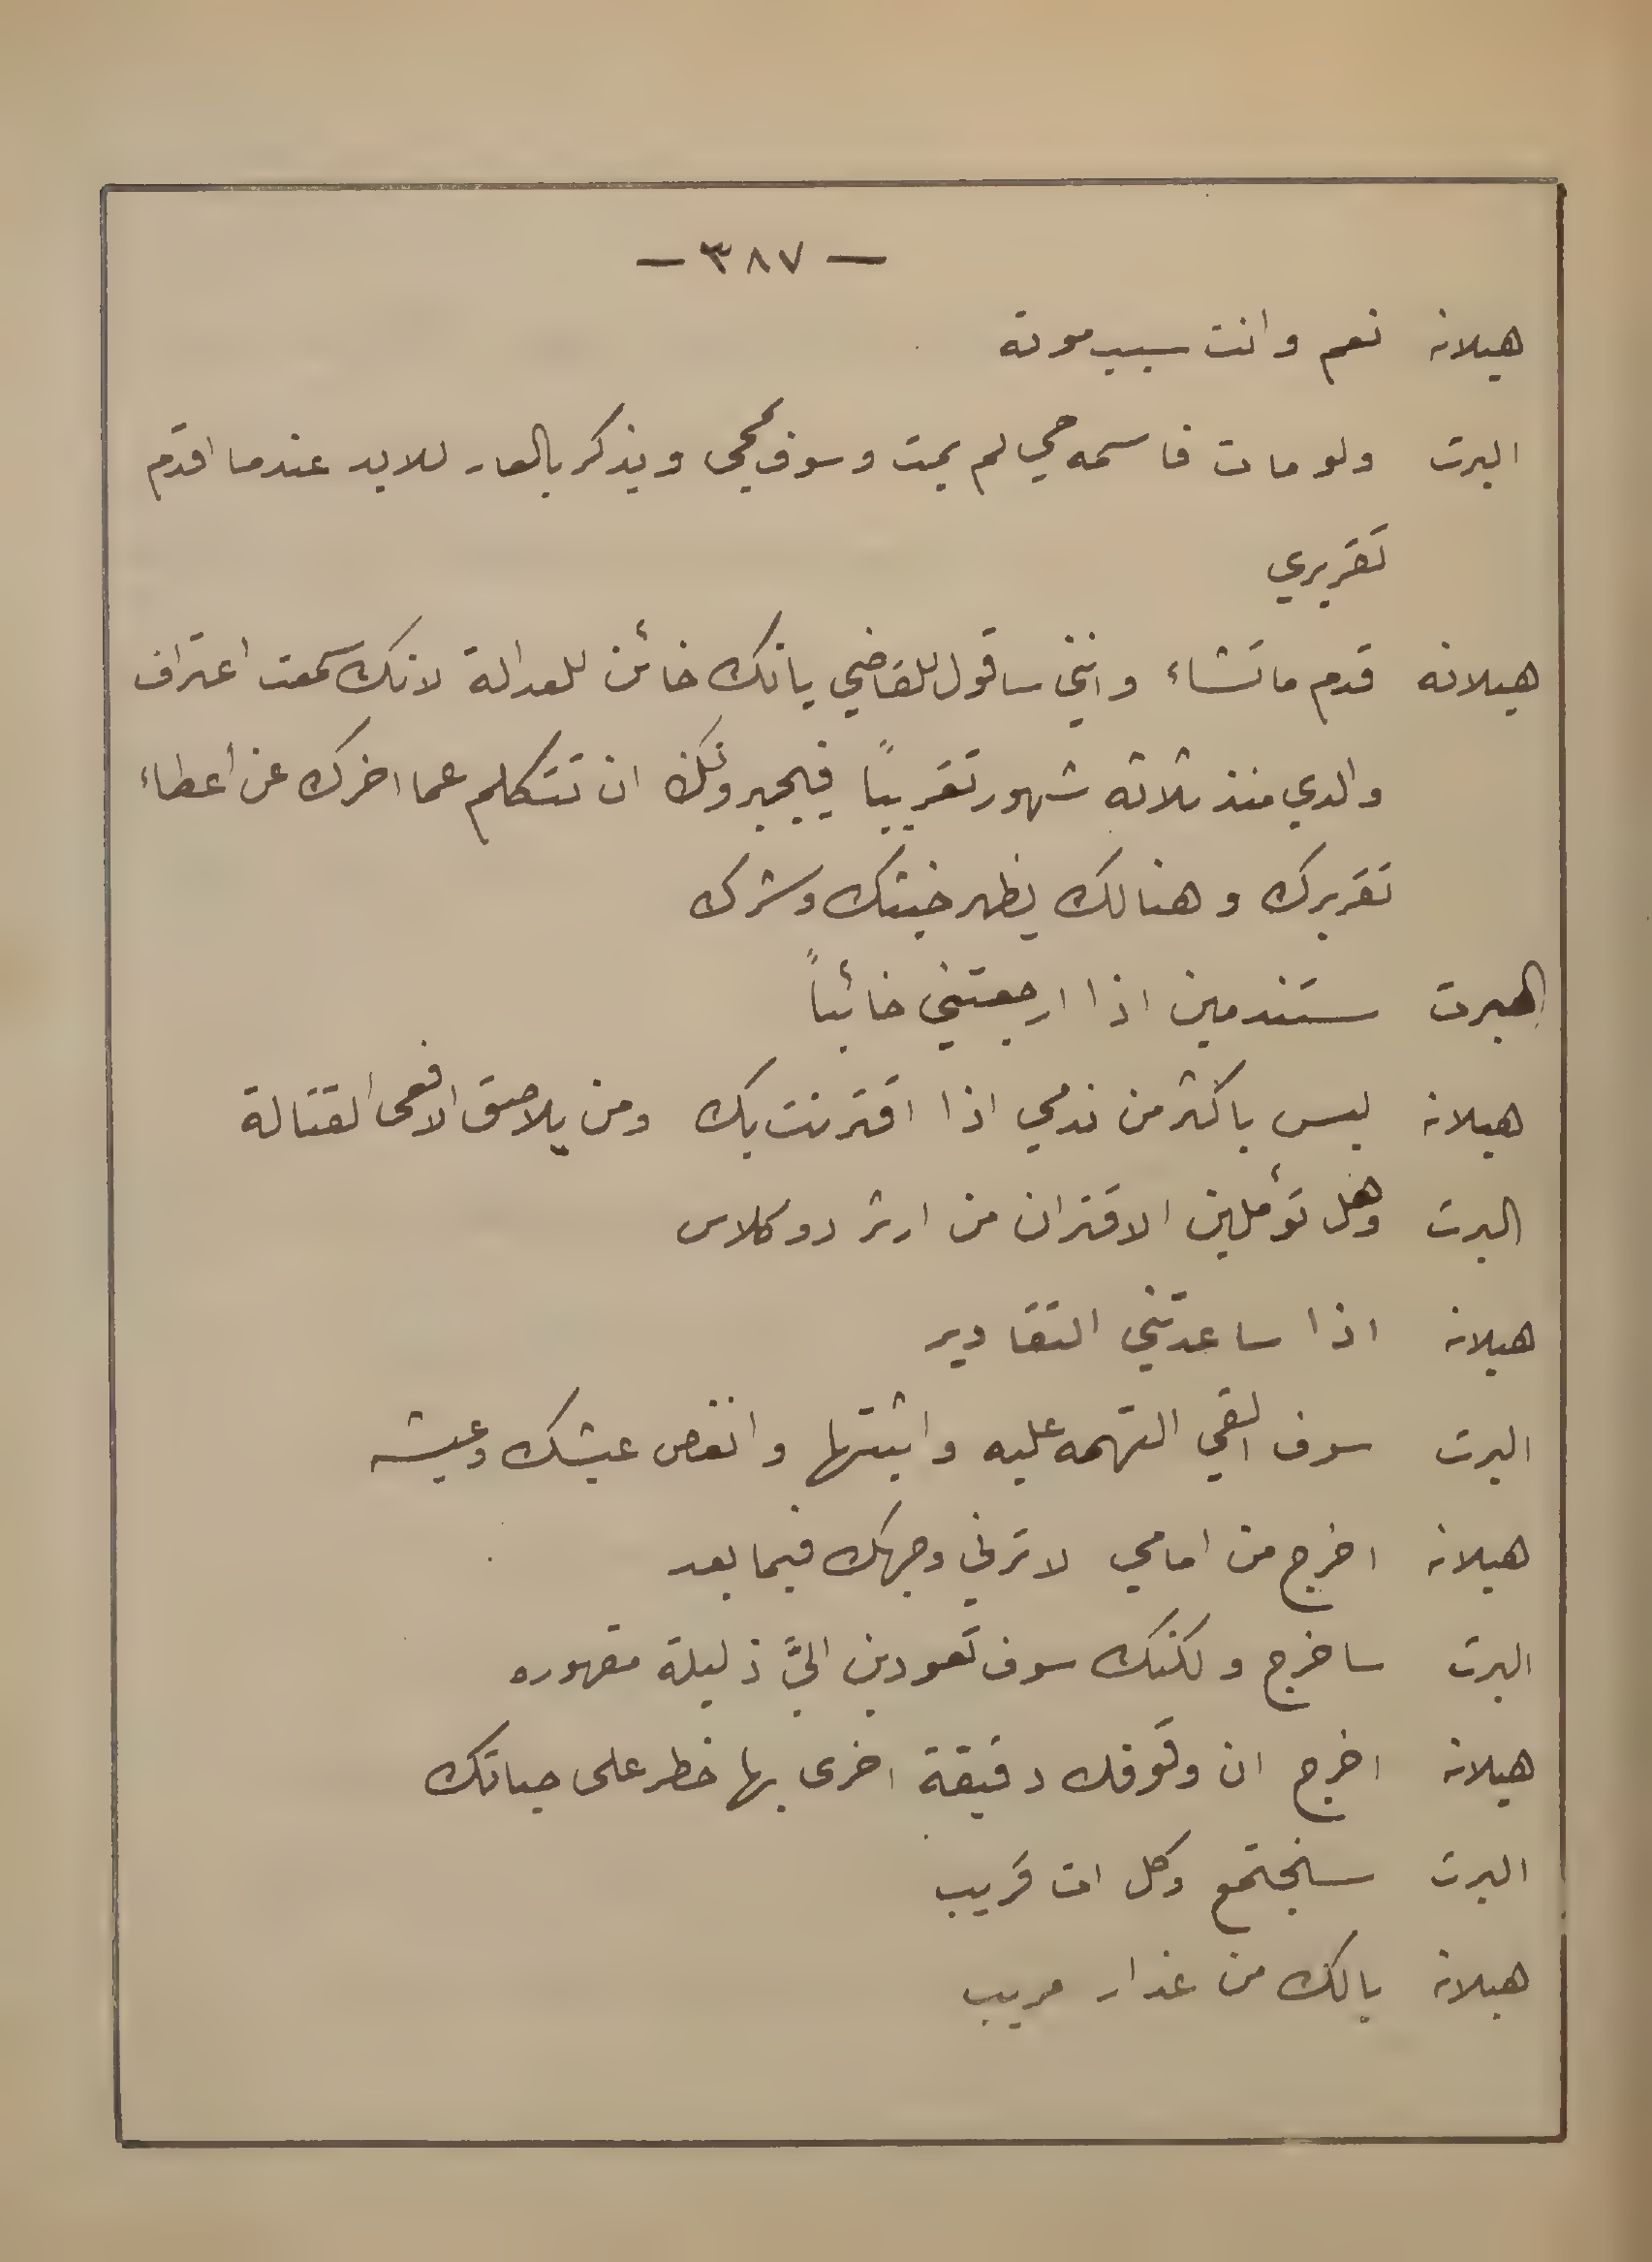 — ٣٨٧ —
هيلانه نعم وانت سبب موته
البرت ولو مات فاسمه حي لم يمت وسوف يحي ويذكر بالعار للابد عندما اقدم
تقريري
هيلانه قدم ما تشاء وانني ساقول للقاضي بانك خائن للعدالة لانك سمعت اعتراف
والدي منذ ثلاثه شهور تقريباً فيجبرونك ان تتكلم عما اخرك عن أعطاء
تقريرك وهنالك يظهر خبثك وشرك
البرت ستندمين اذا ارجعتني خائباً
هيلانه ليس باكثر من ندمي اذا اقترنت بك ومن يلاصق الافعى القتالة
البرت وهل تؤملين الاقتران من ارثر دوكلاس
هيلانه اذا ساعدتني التقادير
البرت سوف القي التهمه عليه واثبتها وانغص عيشك وعيشه
هيلانه اخرج من امامي لا ترني وجهك فيما بعد
البرت ساخرج ولكنك سوف تعودين اليَّ ذليلة مقهوره
هيلانه اخرج ان وقوفك دقيقة اخرى بها خطر على حياتك
البرت سنجتمع وكل ات قريب
هيلانه يالك من غدار مريب